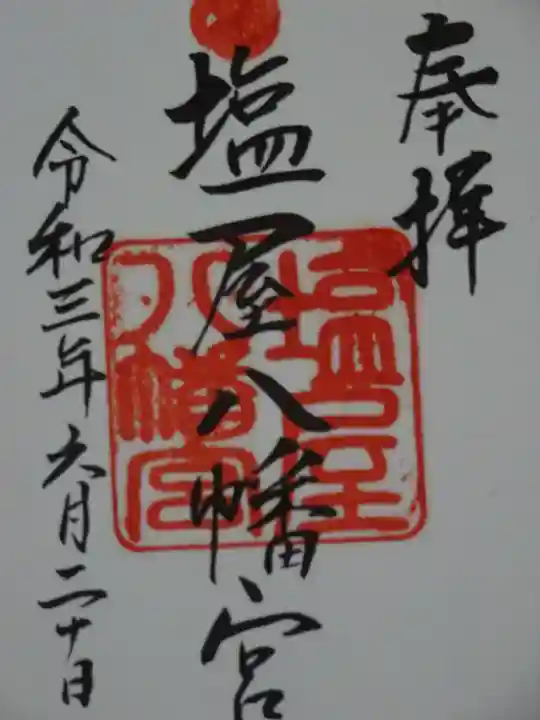 奉拝
塩屋八幡宮
塩屋
八幡宮
令和三年六月二十日